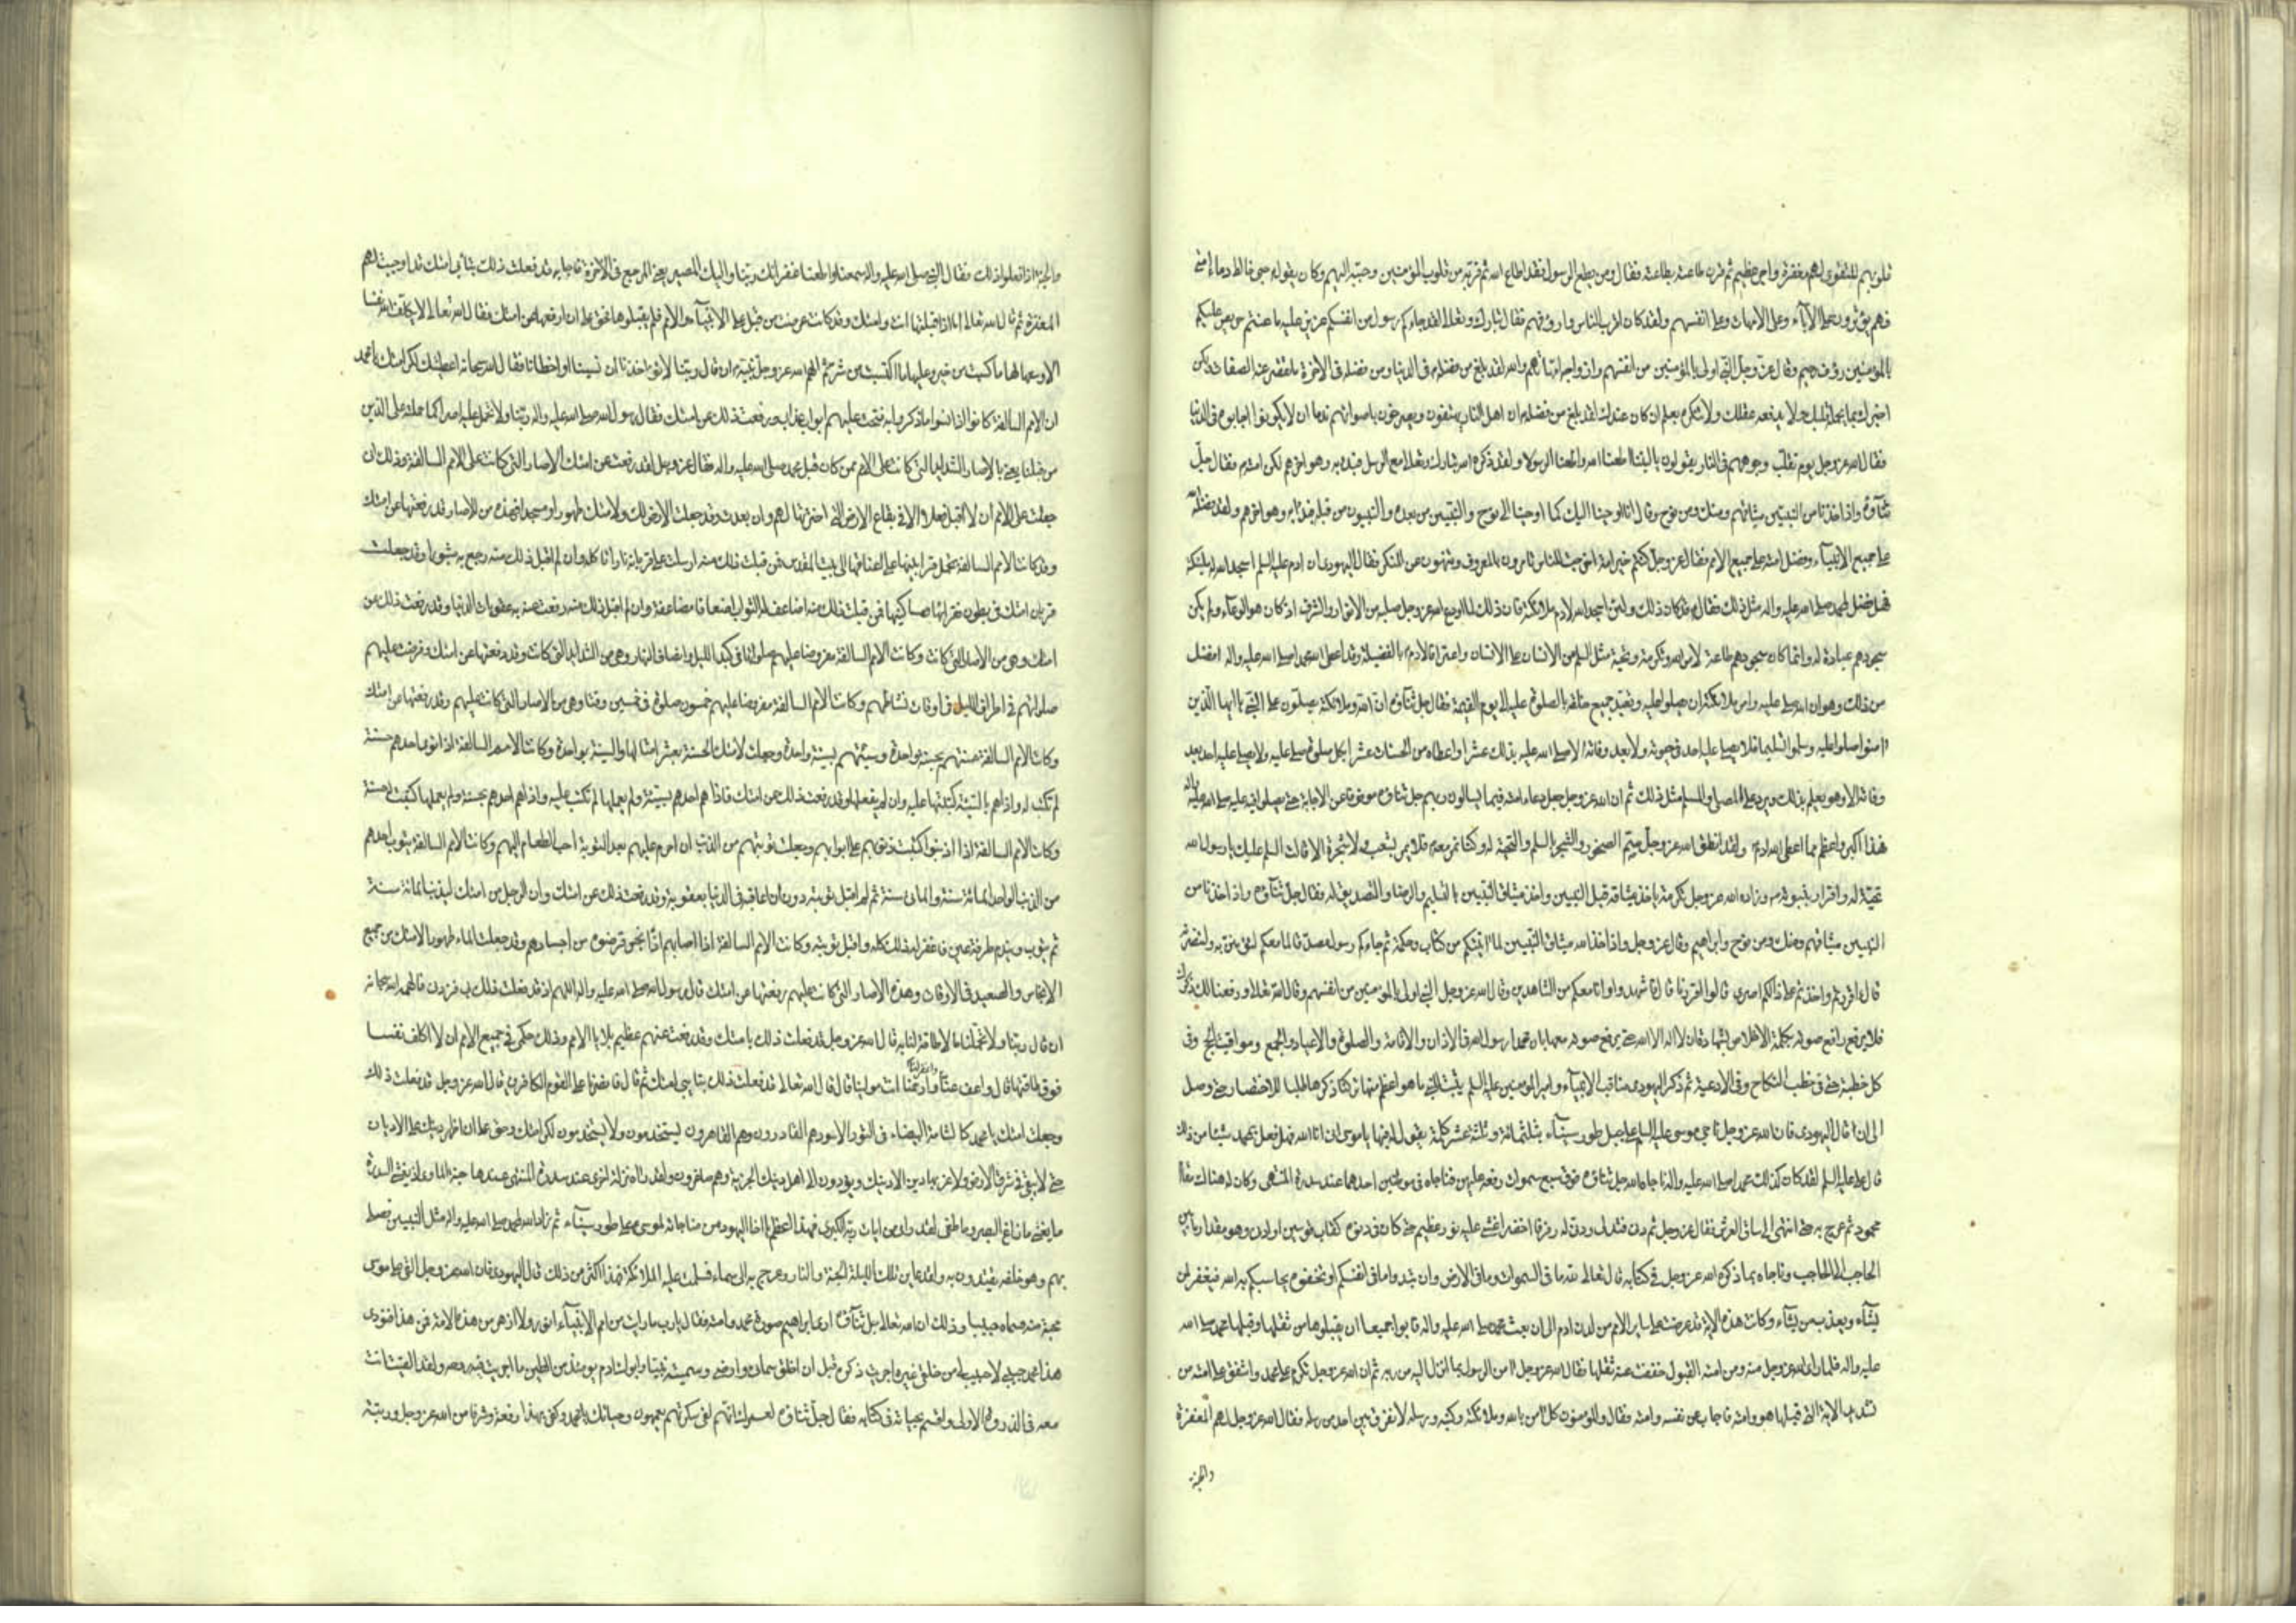 قلوبهم للتقوى لهم مغفرة واجر عظيم ثم قرن طاعته بطاعته فقال ومن يطع الرسول فقد اطاع الله ثم قربه من قلوب المؤمنين وحببه اليهم وكان يقول حبى خالط دماء امتى
فهم يؤثرونى على الآباء وعلى الامهات وعلى انفسهم ولقد كان اقرب الناس وارؤفهم فقال تبارك وتعالى لقد جاءكم رسول من انفسكم عزيز عليه ما عنتم حريص عليكم
بالمؤمنين رؤف رحيم وقال عز وجل النبى اولى بالمؤمنين من انفسهم وازواجه امهاتهم والله لقد بلغ من فضله فى الدنيا ومن فضله فى الاخرة ما تقصر عنه الصفات ولكن
اخبرك بما يحمله قلبك ولا يدفعه عقلك ولا تنكره بعلم ان كان عندك لقد بلغ من فضله ان اهل النار يهتفون ويصرخون باصواتهم ندما ان لا يكونوا اجابوه فى الدنيا
فقال الله عز وجل يوم تقلب وجوههم فى النار يقولون يا ليتنا اطعنا الله واطعنا الرسولا ولقد ذكره الله تبارك وتعالى مع الرسل فبدء به وهو اخرهم لكرامته فقال جل
ثناؤه واذ اخذنا من النبيين ميثاقهم ومنك ومن نوح وقال انا اوحينا اليك كما اوحينا الى نوح والنبيين من بعده والنبيون من قبله فبدء به وهو اخرهم ولقد فضله الله
على جميع الانبياء وفضل امته على جميع الامم فقال عز وجل كنتم خير امة اخرجت للناس تأمرون بالمعروف وتنهون عن المنكر فقال اليهودى ان ادم عليه السلم اسجد الله له ملئكته
فهل فضل لمحمد صلى الله عليه واله مثل ذلك فقال ع قد كان ذلك ولئن اسجد الله لادم ملائكته فان ذلك لما اودع الله عز وجل صلبه من الانوار والشرف اذ كان هو الوعاء ولم يكن
سجودهم عبادة له وانما كان سجودهم طاعة لامر الله وتكرمة وتحية مثل السلم من الانسان على الانسان واعترافا لادم ع بالفضيلة وقد اعطى الله محمدا صلى الله عليه واله افضل
من ذلك وهو ان الله صلى عليه وامر ملائكته ان يصلوا عليه وتعبد جميع خلقه بالصلوة عليه الى يوم القيمة فقال جل ثناؤه ان الله وملائكته يصلون على النبى يا ايها الذين
امنوا صلوا عليه وسلموا تسليما فلا يصلى عليه احد فى حيوته ولا بعد وفاته الا صلى الله عليه بذلك عشرا واعطاه من الحسنات عشرا بكل صلوة صلى عليه ولا يصلى عليه احد بعد
وفاته الا وهو يعلم بذلك ويرد على المصلى والمسلم مثل ذلك ثم ان الله عز وجل جعل دعاء امته فيما يسألون ربهم جل ثناؤه موقوفا عن الاجابة حتى يصلوا فيه عليه صلى الله عليه واله
فهذا اكبر واعظم مما اعطى الله لادم ع ولقد انطق الله عز وجل صم الصخور والشجر بالسلم والتحية له وكنا نمر معه فلا يمر بشعب ولا شجرة الا قالت السلم عليك يا رسول الله
تحية له واقرارا بنبوته ص وزاده الله عز وجل تكرمة باخذ ميثاقه قبل النبيين واخذ ميثاق النبيين بالتسليم والرضا والتصديق له فقال جل ثناؤه واذ اخذنا من
النبيين ميثاقهم ومنك ومن نوح وابراهيم وقال عز وجل واذ اخذ الله ميثاق النبيين لما اتيتكم من كتاب وحكمة ثم جاءكم رسول مصدق لما معكم لتؤمنن به ولتنصرنه
قال ءاقررتم واخذتم على ذالكم اصرى قالوا اقررنا قال فاشهدوا وانا معكم من الشاهدين وقال الله عز وجل النبى اولى بالمؤمنين من انفسهم وقال الله تعالى ورفعنا لك ذكرك
فلا يرفع رافع صوته بكلمة الاخلاص بشهادة ان لا اله الا الله حتى يرفع صوته معها بان محمدا رسول الله فى الاذان والاقامة والصلوة والاعياد والجمع ومواقيت الحج وفى
كل خطبة حتى فى خطب النكاح وفى الادعية ثم ذكر اليهودى مناقب الانبياء وامير المؤمنين عليه السلم يثبت للنبى ما هو اعظم منها تركنا ذكرها طلبا للاختصار حتى وصل
الى ان قال اليهودى فان الله عز وجل ناجى موسى عليه السلم على جبل طور سيناء بثلثمائة وثلثة عشر كلمة يقول له فيها يا موسى انى انا الله فهل فعل بمحمد شيئا من ذلك
قال على عليه السلم لقد كان كذلك ومحمد صلى الله عليه واله ناجاه الله جل ثناؤه فوق سبع سموات رفعه عليهن فناجاه فى موطنين احدهما عند سدرة المنتهى وكان له هناك مقام
محمود ثم عرج به حتى انتهى الى ساق العرش فقال عز وجل ثم دنى فتدلى ودنى له رفرفا اخضر اغشى عليه نور عظيم حتى كان فى دنوه كقاب قوسين او ادنى وهو مقدار ما بين
الحاجب الى الحاجب وناجاه بما ذكره الله عز وجل فى كتابه قال تعالى لله ما فى السموات وما فى الارض وان تبدوا ما فى انفسكم او تخفوه يحاسبكم به الله فيغفر لمن
يشاء ويعذب من يشاء وكانت هذه الاية قد عرضت على سائر الامم من لدن ادم الى ان بعث محمد صلى الله عليه واله فابوا جميعا ان يقبلوها من ثقلها وقبلها محمد صلى الله
عليه واله فلما راى الله عز وجل منه ومن امته القبول خففت عنه ثقلها فقال الله عز وجل امن الرسول بما انزل اليه من ربه ثم ان الله عز وجل تكرم على محمد واشفق على امته من
تشديد الاية التى قبلها هو وامته فاجاب عن نفسه وامته فقال والمؤمنون كل امن بالله وملائكته وكتبه ورسله لا نفرق بين احد من رسله فقال الله عز وجل لهم المغفرة
والجنة
والجنة اذا فعلوا ذلك فقال النبى صلى الله عليه واله سمعنا واطعنا غفرانك ربنا واليك المصير يعنى المرجع فى الاخرة فاجابه قد فعلت ذلك بتائبى امتك قد اوجبت لهم
المغفرة ثم قال الله تعالى اما اذا قبلتها انت وامتك وقد كانت عرضت من قبل على الانبياء والامم فلم يقبلوها فحق على ان ارفعها عن امتك فقال الله تعالى لا يكلف الله نفسا
الا وسعها لها ما كسبت من خير وعليها ما اكتسبت من شر ثم الهم الله عز وجل نبيه ان قال ربنا لا تؤاخذنا ان نسينا او اخطأنا فقال الله سبحانه اعطيتك لكرامتك يا محمد
ان الامم السالفة كانوا اذا نسوا ما ذكروا به فتحت عليهم ابواب عذاب ورفعت ذلك عن امتك فقال رسول الله صلى الله عليه واله ربنا ولا تحمل علينا اصرا كما حملته على الذين
من قبلنا يعنى بالاصار الشدايد التى كانت على الامم ممن كان قبل محمد صلى الله عليه واله فقال عز وجل لقد رفعت عن امتك الاصار التى كانت على الامم السالفة وذلك ان
جعلت على الامم ان لا اقبل فعلا الا فى بقاع الارض التى اخترتها لهم وان بعدت وقد جعلت الارض لك ولامتك طهورا ومسجدا فهذه من الاصار قد رفعتها عن امتك
وقد كانت الامم السالفة تحمل قرابينها على اعناقها الى بيت المقدس فمن قبلت ذلك منه ارسلت على قربانه نارا تاكله وان لم اقبل ذلك منه رجع به مثبورا وقد جعلت
قربان امتك فى بطون فقرائها ومساكينها فمن قبلت ذلك منه اضاعف له الثواب اضعافا مضاعفة وان لم اقبل ذلك منه رفعت عنه به عقوبات الدنيا وقد رفعت ذلك عن
امتك وهى من الاصار التى كانت وكانت الامم السالفة مفروضا عليهم صلواتها فى كبد الليل وانصاف النهار وهى من الشدايد التى كانت وقد رفعتها عن امتك وفرضت عليهم
صلواتهم فى اطراف الليل فى اوقات نشاطهم وكانت الامم السالفة مفروضا عليهم خمسون صلوة فى خمسين وقتا وهى من الاصار التى كانت عليهم وقد رفعتها عن امتك
وكانت الامم السالفة حسنتهم بحسنة واحدة وسيئتهم بسيئة واحدة وجعلت لامتك الحسنة بعشر امثالها والسيئة بواحدة وكانت الامم السالفة اذا نوى احدهم حسنة
لم تكتب له واذا هم بالسيئة كتبتها عليه وان لم يفعلها وقد رفعت ذلك عن امتك فاذا هم احدهم بسيئة ولم يعملها لم تكتب عليه واذا هم احدهم بحسنة ولم يعملها كتبت له حسنة
وكانت الامم السالفة اذا اذنبوا كتبت ذنوبهم على ابوابهم وجعلت توبتهم من الذنب ان احرم عليهم بعد التوبة احب الطعام اليهم وكانت الامم السالفة يتوب احدهم
من الذنب الواحد المائة سنة والمائتى سنة ثم لم اقبل توبته دون ان اعاقبه فى الدنيا بعقوبة وقد رفعت ذلك عن امتك وان الرجل من امتك ليذنب المائة سنة
ثم يتوب ويندم طرفة عين فاغفر له ذلك كله واقبل توبته وكانت الامم السالفة اذا اصابهم اذا نجس قرضوه من اجسادهم وقد جعلت الماء طهورا لامتك من جميع
الانجاس والصعيد فى الاوقات وهذه الاصار التى كانت عليهم رفعتها عن امتك قال رسول الله صلى الله عليه واله اللهم اذ قد فعلت ذلك بى فزدنى فالهمه الله سبحانه
ان قال ربنا ولا تحملنا ما لا طاقة لنا به قال الله عز وجل قد فعلت ذلك بامتك وقد رفعت عنهم عظيم بلايا الامم وذلك حكمى فى جميع الامم ان لا اكلف نفسا
فوق طاقتها قال واعف عنا واغفر لنا وارحمنا انت مولينا قال قال الله تعالى قد فعلت ذلك بتايبى امتك ثم قال فانصرنا على القوم الكافرين قال الله عز وجل قد فعلت ذلك
وجعلت امتك يا محمد كالشامة البيضاء فى الثور الاسود هم القادرون وهم القاهرون يستخدمون ولا يستخدمون لكرامتك وحق على ان اظهر دينك على الاديان
حتى لا يبقى فى شرق الارض ولا غربها دين الا دينك ويؤدون الى اهل دينك الجزية وهم صاغرون ولقد راه نزلة اخرى عند سدرة المنتهى عندها جنة الماوى اذ يغشى السدرة
ما يغشى ما زاغ البصر وما طغى لقد راى من ايات ربه الكبرى فهذا اعظم يا اخا اليهود من مناجاته لموسى ع على طور سيناء ثم زاد الله لمحمد صلى الله عليه واله مثل النبيين فصلى
بهم وهو خلفه يقتدون به ولقد عاين تلك الليلة الجنة والنار وعرج به الى سماء فسلمت عليه الملائكة فهذا اكثر من ذلك قال اليهودى فان الله عز وجل القى على موسى
محبة منه فسماه حبيبا وذلك ان الله تعالى جل ثناؤه ارى ابراهيم صورة محمد وامته فقال يا رب ما رايت من امم الانبياء انور ولا ازهر من هذه الامة فمن هذا فنودى
هذا محمد حبيبى لا حبيب لى من خلقى غيره اجريت ذكره قبل ان اخلق سمائى وارضى وسميته نبيا وابوك ادم يومئذ من الطين ما اجريت فيه روحه ولقد القيت انت
معه فى الذروة الاولى واقسم بحياته فى كتابه فقال جل ثناؤه لعمرك انهم لفى سكرتهم يعمهون وحياتك يا محمد وكفى بهذا رفعة وشرفا من الله عز وجل ورتبة